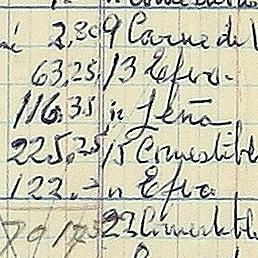 2,80 9 Carne de
63,25 13 Efra.
116,35 " Leña
225,25 15 Comestibl
122,- " Efra
23 Comestibl